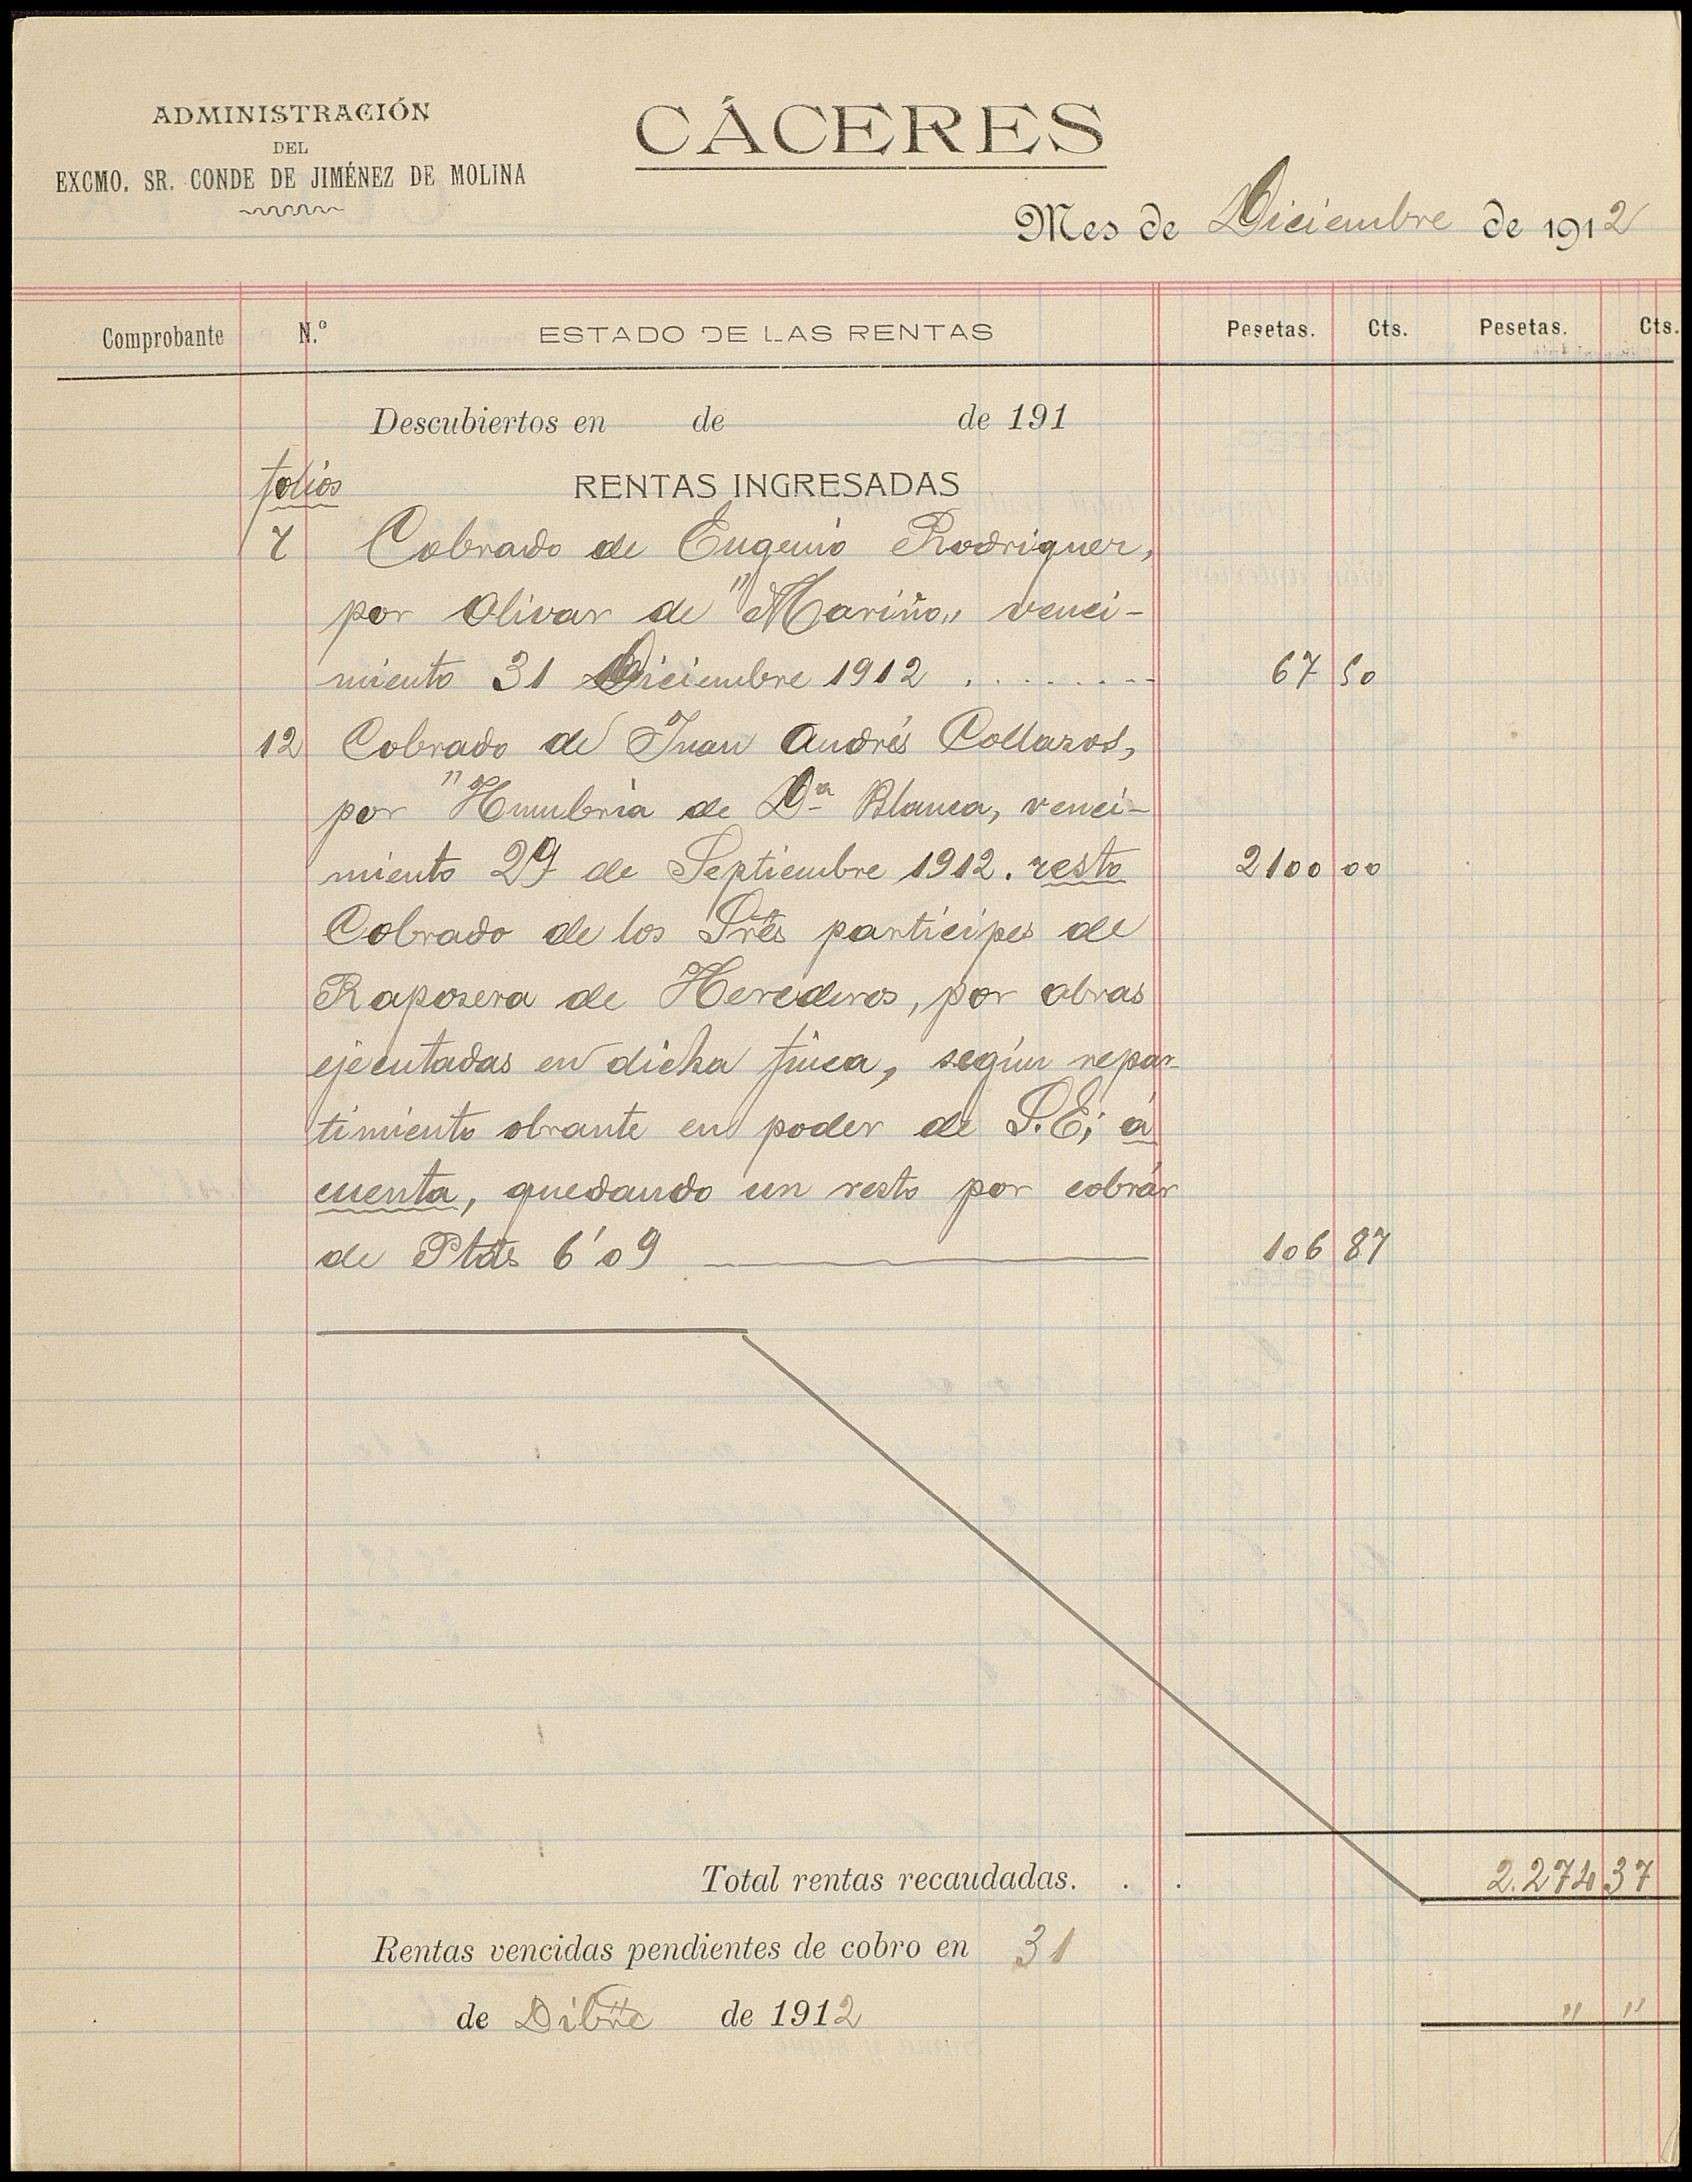 ADMINISTRACIÓN
DEL
EXCMO. SR. CONDE DE JIMÉNEZ DE MOLINA
CÁCERES
Mes de Diciembre de 1912
Comprobante N.º ESTADO DE LAS RENTAS Pesetas. Cts. Pesetas. Cts.
Descubiertos en de de 191
folios
RENTAS INGRESADAS
7 Cobrado de Eugenio Rodriguez,
por Olivar de "Mariño„ venci-
miento 31 Diciembre 1912 . . . . . . . . 67 50
12 Cobrado de Juan Andrés Collazos,
por "Humbria de Dª Blanca, venci-
miento 29 de Septiembre 1912. resto 2100 00
Cobrado de los Sres participes de
Raposera de Herederos, por obras
ejecutadas en dicha finca, según repar-
timiento obrante en poder de S.E; á
cuenta, quedando un resto por cobrár
de Ptas 6'09 106 87
Total rentas recaudadas. . . 2.274 37
Rentas vencidas pendientes de cobro en 31
de Dibre de 1912 " "